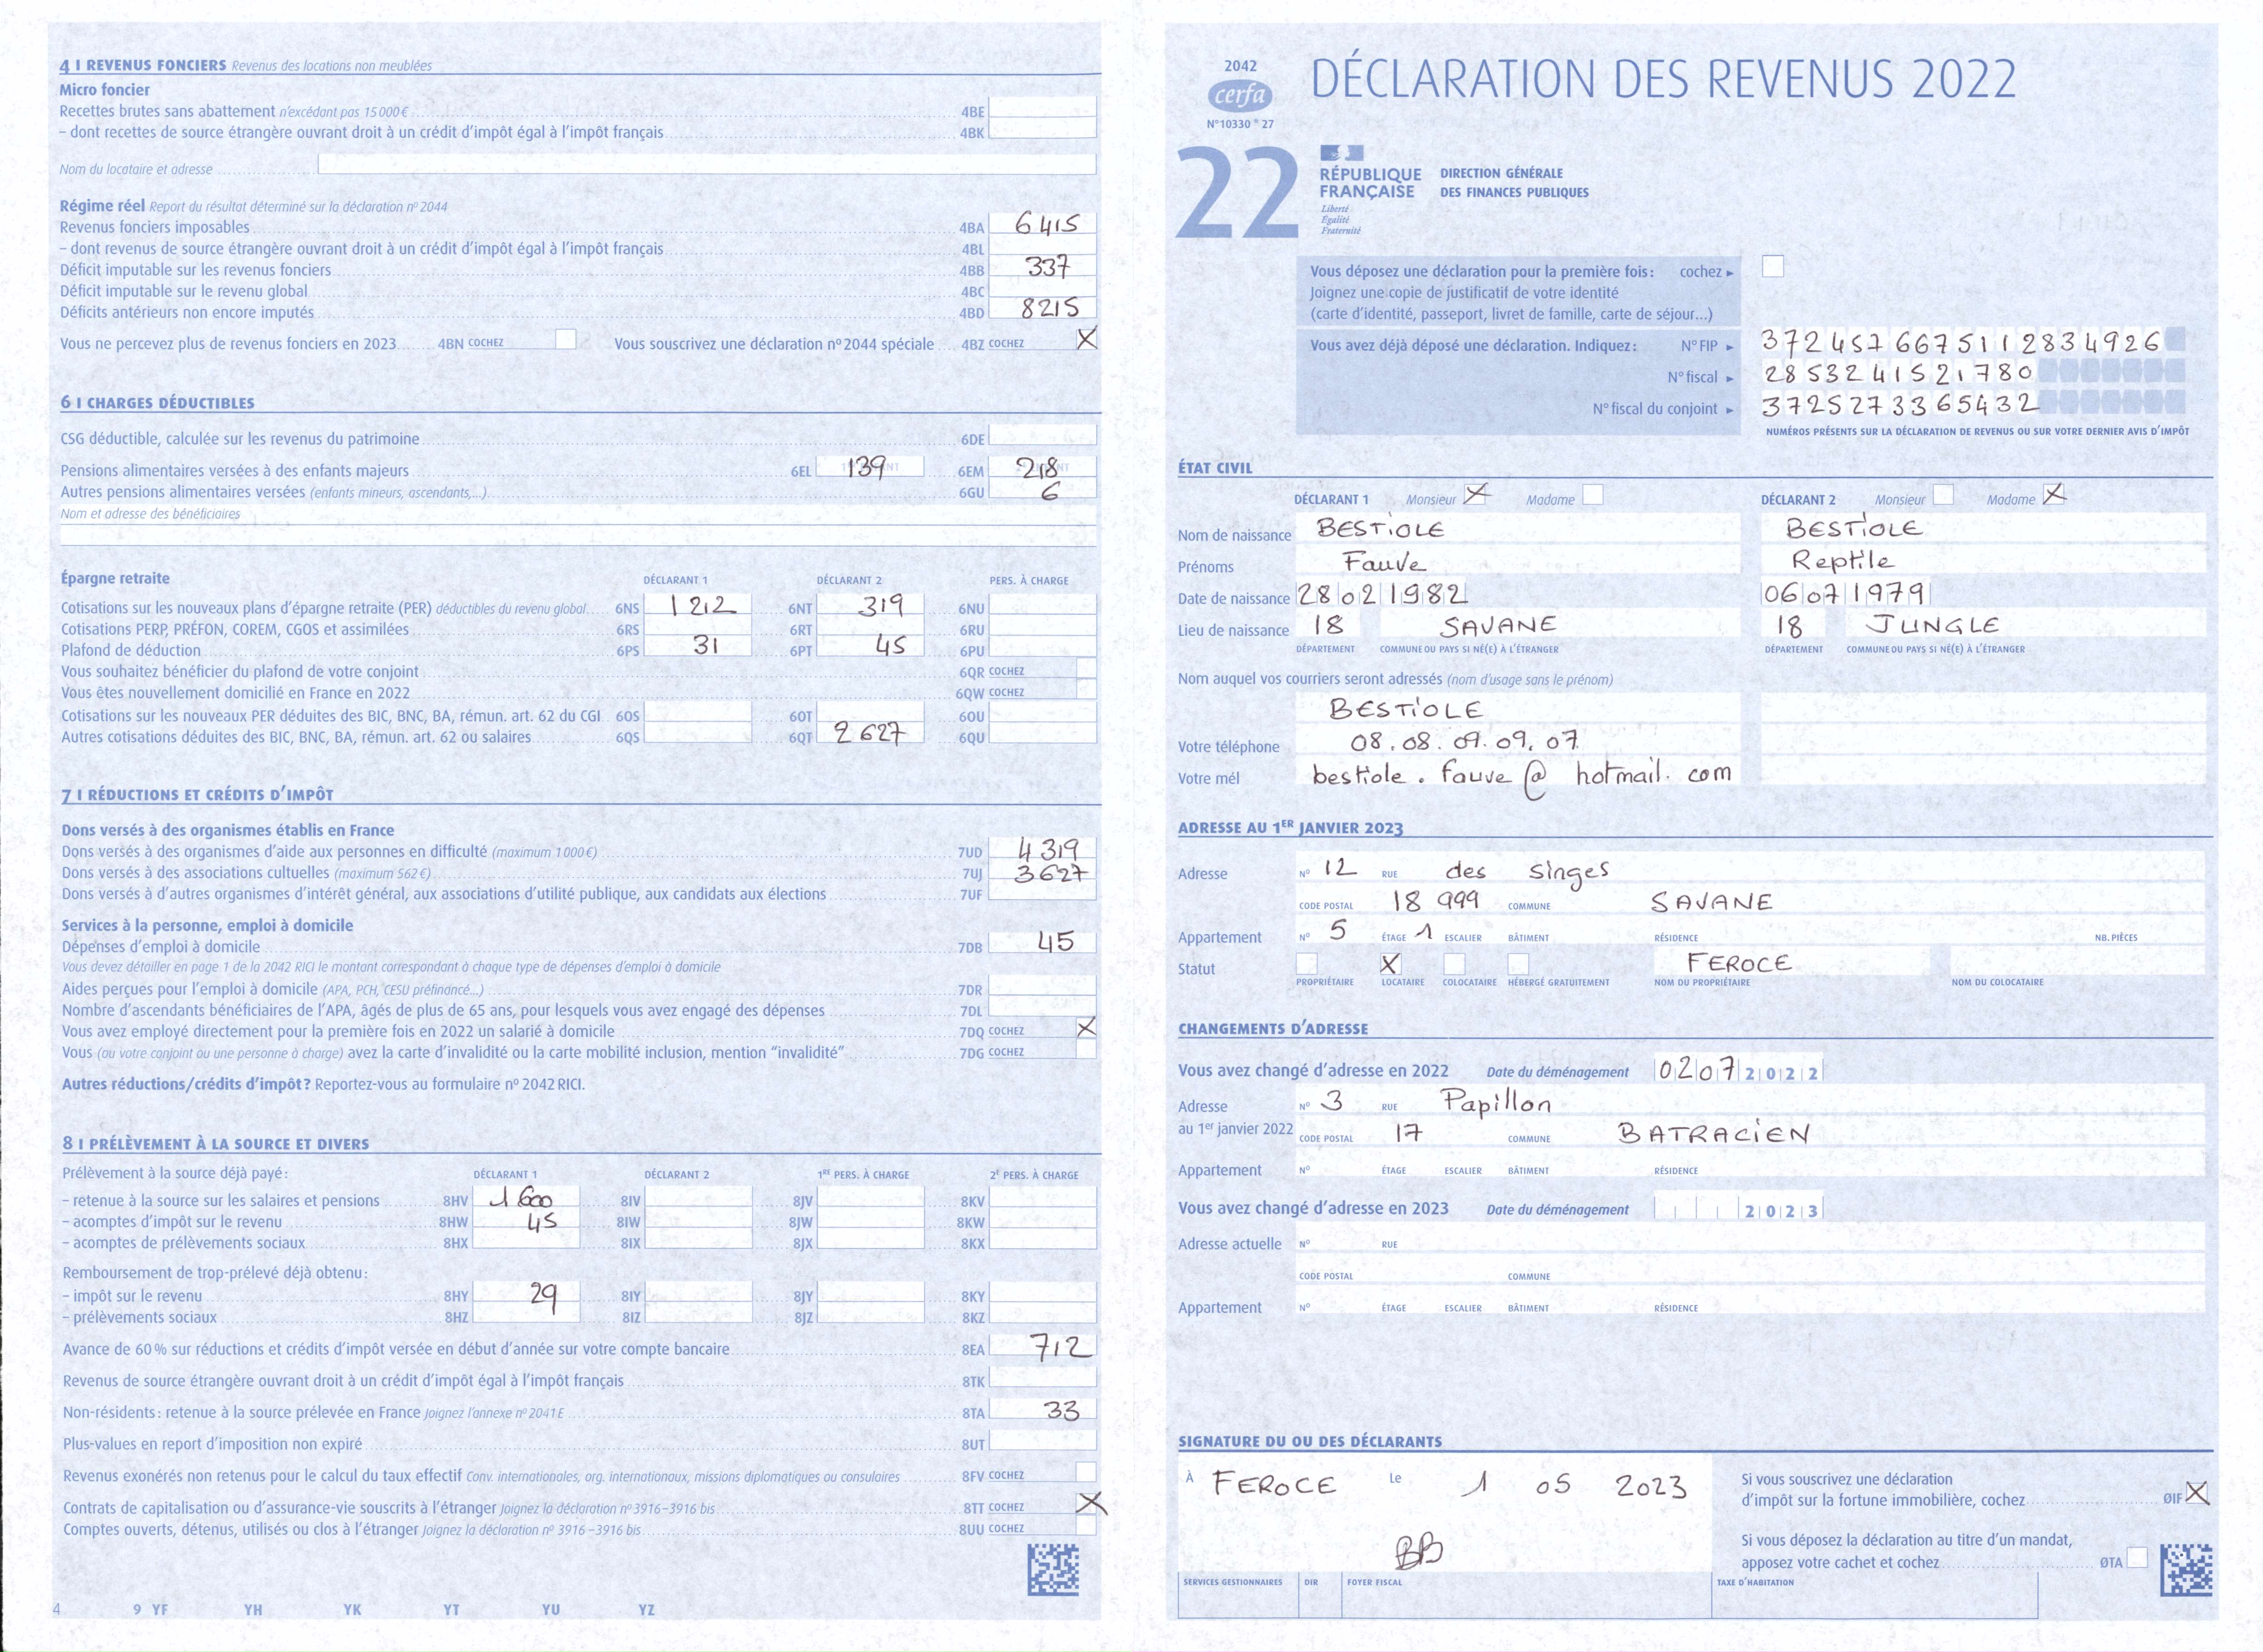 4 I REVENUS FONCIERS Revenus des locations non meublées
Micro foncier
Recettes brutes sans abattement n'excédant pas 15 000 € 4BE
– dont recettes de source étrangère ouvrant droit à un crédit d'impôt égal à l'impôt français 4BK
Nom du locataire et adresse
Régime réel Report du résultat déterminé sur la déclaration nº 2044
Revenus fonciers imposables 4BA 6415
– dont revenus de source étrangère ouvrant droit à un crédit d'impôt égal à l'impôt français 4BL
Déficit imputable sur les revenus fonciers 4BB 337
Déficit imputable sur le revenu global 4BC
Déficits antérieurs non encore imputés 4BD 8215
Vous ne percevez plus de revenus fonciers en 2023 4BN COCHEZ Vous souscrivez une déclaration nº 2044 spéciale 4BZ COCHEZ X
6 I CHARGES DÉDUCTIBLES
CSG déductible, calculée sur les revenus du patrimoine 6DE
Pensions alimentaires versées à des enfants majeurs 6EL 139 6EM 218
Autres pensions alimentaires versées (enfants mineurs, ascendants,...) 6GU 6
Nom et adresse des bénéficiaires
Épargne retraite DÉCLARANT 1 DÉCLARANT 2 PERS. À CHARGE
Cotisations sur les nouveaux plans d'épargne retraite (PER) déductibles du revenu global 6NS 1212 6NT 319 6NU
Cotisations PERP, PRÉFON, COREM, CGOS et assimilées 6RS 6RT 6RU
Plafond de déduction 6PS 31 6PT 45 6PU
Vous souhaitez bénéficier du plafond de votre conjoint 6QR COCHEZ
Vous êtes nouvellement domicilié en France en 2022 6QW COCHEZ
Cotisations sur les nouveaux PER déduites des BIC, BNC, BA, rémun. art. 62 du CGI 6OS 6OT 6OU
Autres cotisations déduites des BIC, BNC, BA, rémun. art. 62 ou salaires 6QS 6QT 2627 6QU
7 I RÉDUCTIONS ET CRÉDITS D'IMPÔT
Dons versés à des organismes établis en France
Dons versés à des organismes d'aide aux personnes en difficulté (maximum 1 000 €) 7UD 4319
Dons versés à des associations cultuelles (maximum 562 €) 7UJ 3627
Dons versés à d'autres organismes d'intérêt général, aux associations d'utilité publique, aux candidats aux élections 7UF
Services à la personne, emploi à domicile
Dépenses d'emploi à domicile 7DB 45
Vous devez détailler en page 1 de la 2042 RICI le montant correspondant à chaque type de dépenses d'emploi à domicile
Aides perçues pour l'emploi à domicile (APA, PCH, CESU préfinancé...) 7DR
Nombre d'ascendants bénéficiaires de l'APA, âgés de plus de 65 ans, pour lesquels vous avez engagé des dépenses 7DL
Vous avez employé directement pour la première fois en 2022 un salarié à domicile 7DQ COCHEZ X
Vous (ou votre conjoint ou une personne à charge) avez la carte d'invalidité ou la carte mobilité inclusion, mention "invalidité" 7DG COCHEZ
Autres réductions/crédits d'impôt ? Reportez-vous au formulaire nº 2042 RICI.
8 I PRÉLÈVEMENT À LA SOURCE ET DIVERS
Prélèvement à la source déjà payé : DÉCLARANT 1 DÉCLARANT 2 1RE PERS. À CHARGE 2E PERS. À CHARGE
– retenue à la source sur les salaires et pensions 8HV 1600 8IV 8JV 8KV
– acomptes d'impôt sur le revenu 8HW 45 8IW 8JW 8KW
– acomptes de prélèvements sociaux 8HX 8IX 8JX 8KX
Remboursement de trop-prélevé déjà obtenu :
– impôt sur le revenu 8HY 29 8IY 8JY 8KY
– prélèvements sociaux 8HZ 8IZ 8JZ 8KZ
Avance de 60 % sur réductions et crédits d'impôt versée en début d'année sur votre compte bancaire 8EA 712
Revenus de source étrangère ouvrant droit à un crédit d'impôt égal à l'impôt français 8TK
Non-résidents : retenue à la source prélevée en France Joignez l'annexe nº 2041 E 8TA 33
Plus-values en report d'imposition non expiré 8UT
Revenus exonérés non retenus pour le calcul du taux effectif Conv. internationales, org. internationaux, missions diplomatiques ou consulaires 8FV COCHEZ
Contrats de capitalisation ou d'assurance-vie souscrits à l'étranger Joignez la déclaration nº 3916–3916 bis 8TT COCHEZ X
Comptes ouverts, détenus, utilisés ou clos à l'étranger Joignez la déclaration nº 3916–3916 bis 8UU COCHEZ
4 9 YF YH YK YT YU YZ
2042
cerfa
N° 10330 * 27
DÉCLARATION DES REVENUS 2022
22
RÉPUBLIQUE FRANÇAISE
Liberté
Égalité
Fraternité
DIRECTION GÉNÉRALE
DES FINANCES PUBLIQUES
Vous déposez une déclaration pour la première fois : cochez ►
Joignez une copie de justificatif de votre identité
(carte d'identité, passeport, livret de famille, carte de séjour...)
Vous avez déjà déposé une déclaration. Indiquez : N° FIP ► 3724576675112834926
N° fiscal ► 2853241521780
N° fiscal du conjoint ► 3725273365432
NUMÉROS PRÉSENTS SUR LA DÉCLARATION DE REVENUS OU SUR VOTRE DERNIER AVIS D'IMPÔT
ÉTAT CIVIL
DÉCLARANT 1 Monsieur X Madame DÉCLARANT 2 Monsieur Madame X
Nom de naissance BESTiOLE BESTiOLE
Prénoms Fauve Reptile
Date de naissance 28021982 06071979
Lieu de naissance 18 SAVANE 18 JUNGLE
DÉPARTEMENT COMMUNE OU PAYS SI NÉ(E) À L'ÉTRANGER DÉPARTEMENT COMMUNE OU PAYS SI NÉ(E) À L'ÉTRANGER
Nom auquel vos courriers seront adressés (nom d'usage sans le prénom)
BESTiOLE
Votre téléphone 08.08.09.09.07
Votre mél bestiole.fauve@hotmail.com
ADRESSE AU 1ER JANVIER 2023
Adresse N° 12 RUE des Singes
CODE POSTAL 18 999 COMMUNE SAVANE
Appartement N° 5 ÉTAGE 1 ESCALIER BÂTIMENT RÉSIDENCE NB. PIÈCES
Statut X FEROCE
PROPRIÉTAIRE LOCATAIRE COLOCATAIRE HÉBERGÉ GRATUITEMENT NOM DU PROPRIÉTAIRE NOM DU COLOCATAIRE
CHANGEMENTS D'ADRESSE
Vous avez changé d'adresse en 2022 Date du déménagement 02072022
Adresse N° 3 RUE Papillon
au 1er janvier 2022 CODE POSTAL 17 COMMUNE BATRACiEN
Appartement N° ÉTAGE ESCALIER BÂTIMENT RÉSIDENCE
Vous avez changé d'adresse en 2023 Date du déménagement 2023
Adresse actuelle N° RUE
CODE POSTAL COMMUNE
Appartement N° ÉTAGE ESCALIER BÂTIMENT RÉSIDENCE
SIGNATURE DU OU DES DÉCLARANTS
À FEROCE Le 1 05 2023
BB
Si vous souscrivez une déclaration
d'impôt sur la fortune immobilière, cochez ØIF X
Si vous déposez la déclaration au titre d'un mandat,
apposez votre cachet et cochez ØTA
SERVICES GESTIONNAIRES DIR FOYER FISCAL TAXE D'HABITATION